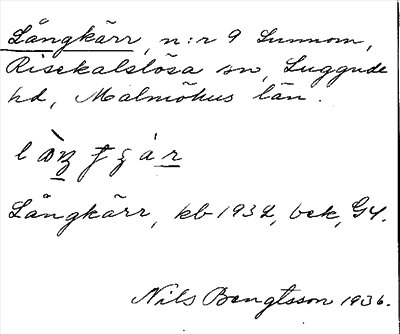 Långkärr, n:r 9 Sunnom,
Risekatslösa sn, Luggude
hd, Malmöhus län.
Långkärr, kb 1932, bek, G4.
Nils Bengtsson 1936.